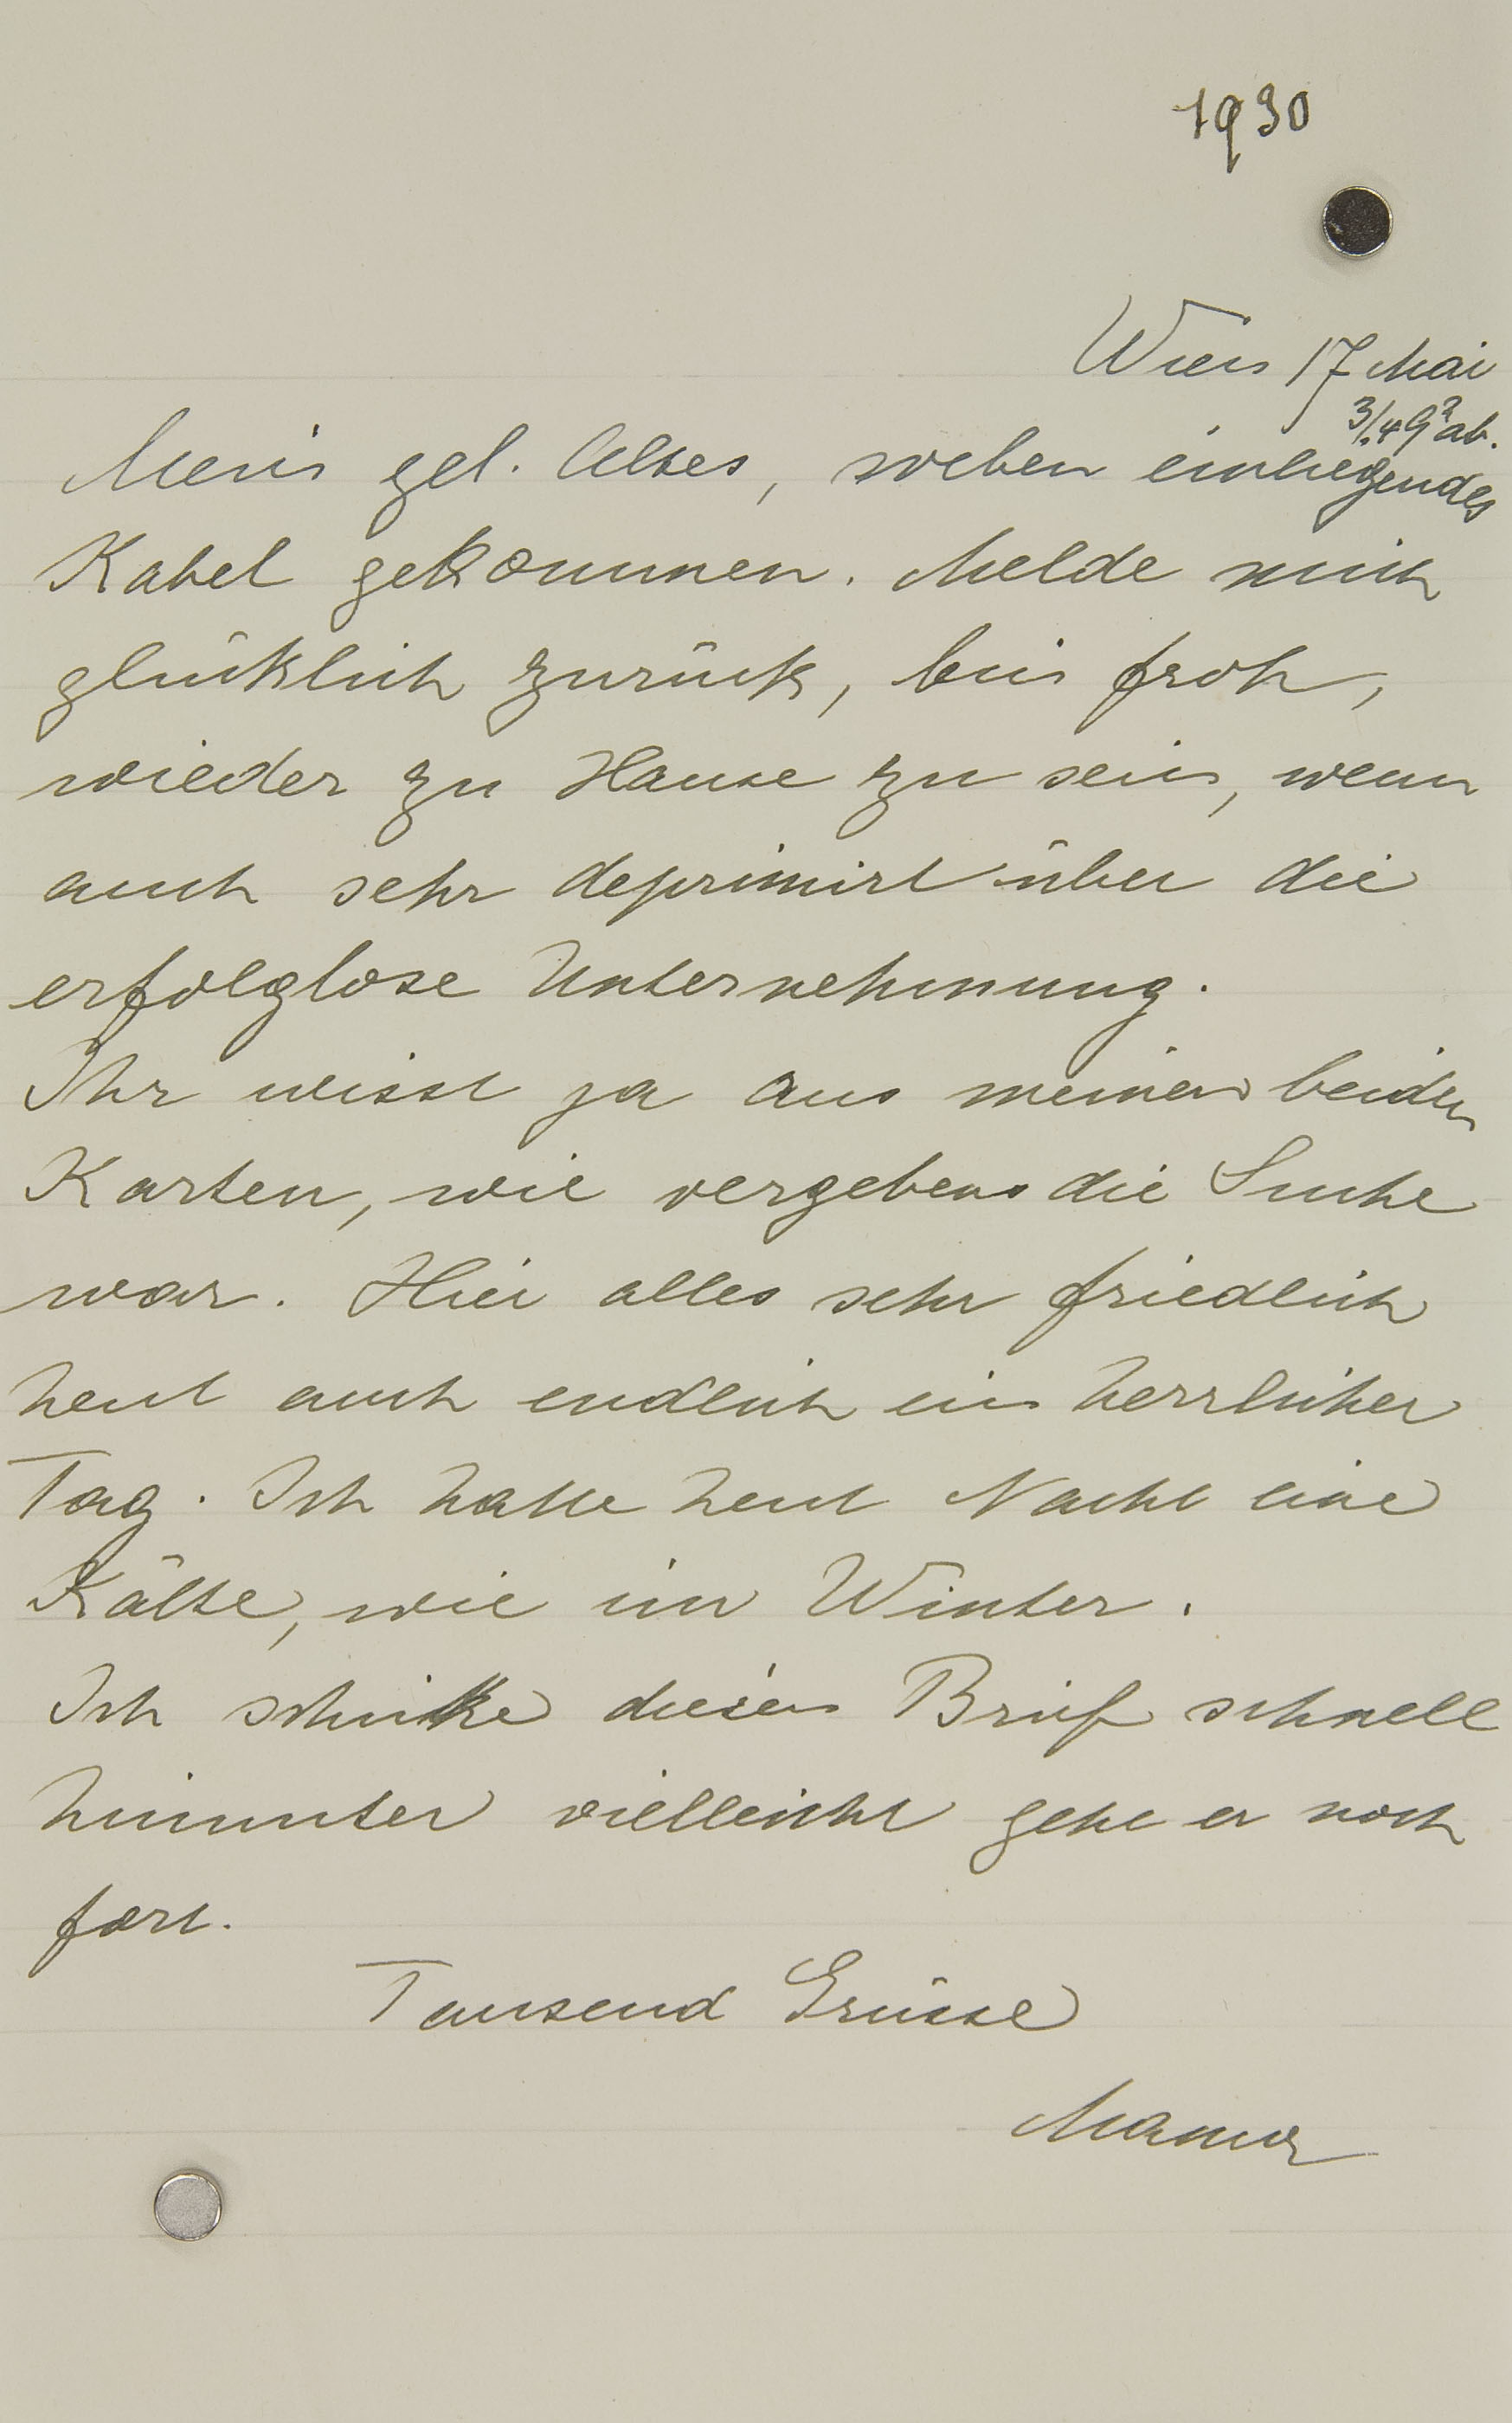 1930
Wien 17 Mai
3/4 9 ab.
Mein gel. Altes, soeben einliegendes
Kabel gekommen. Melde mich
glüklich zurück, bin froh,
wieder zu Hause zu sein, wenn
auch sehr deprimirt über die
erfolglose Unternehmung.
Ihr wisst ja aus meinen beiden
Karten, wie vergebens die Suche
war. Hier alles sehr friedlich
heut auch endlich ein herrlicher
Tag. Ich hatte heut Nacht eine
Kälte, wie im Winter.
Ich schicke diesen Brief schnell
hinunter vielleicht geht er noch
fort.
Tausend Grüsse
Mama